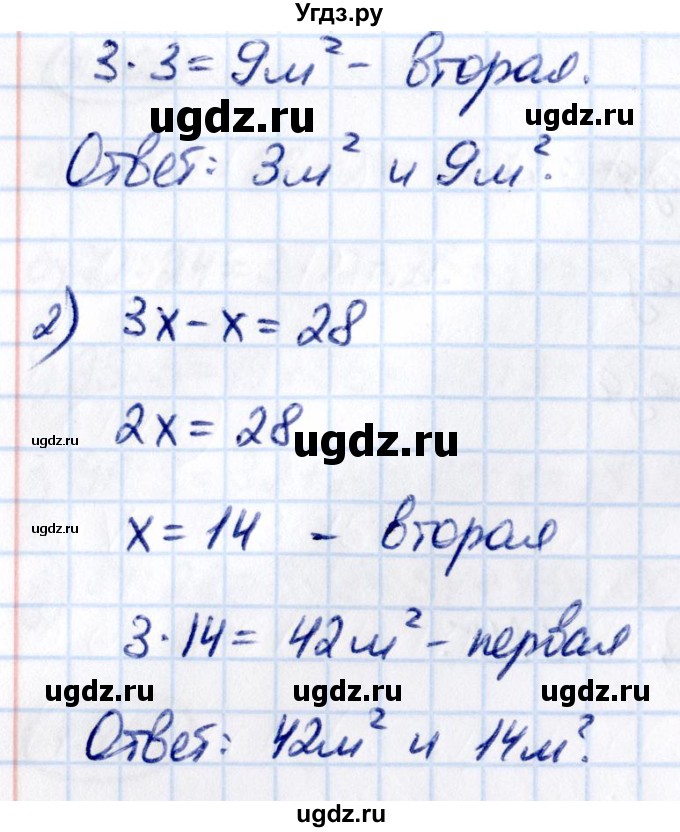 Угдз.ру
3 · 3 = 9м² - вторая.
ugdz.ru
ugdz.ru
Ответ: 3м² и 9м².
2) 3x - x = 28
ugdz.ru
2x = 28
ugdz.ru
ugdz.ru
x = 14 - вторая
3 · 14 = 42м² - первая
ugdz.ru
ugdz.ru
ugdz.ru
Ответ: 42м² и 14м².
ugdz.ru